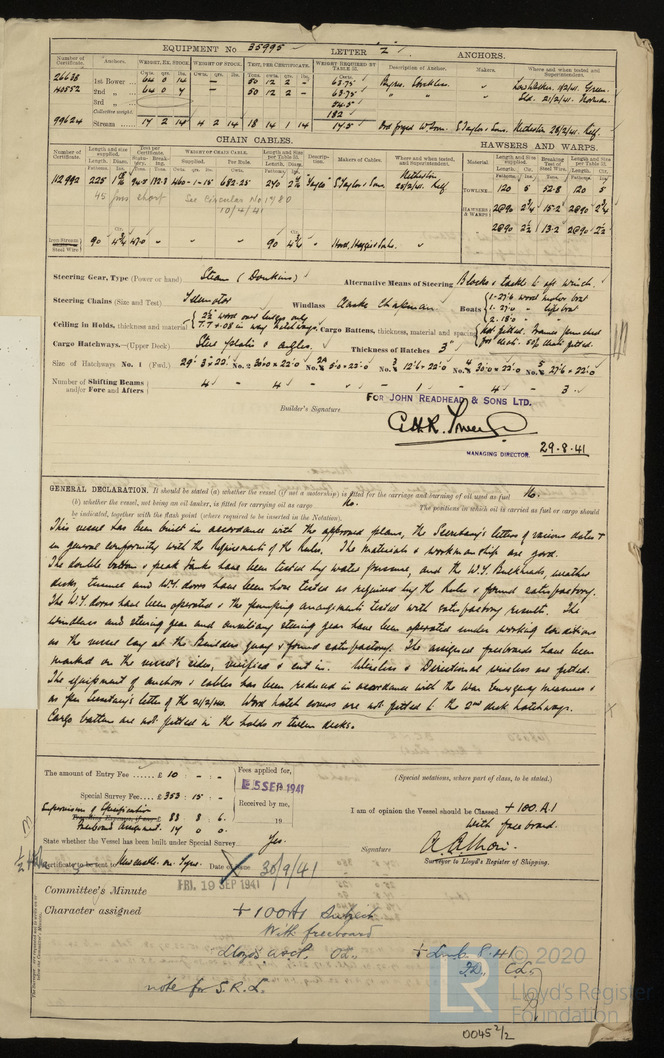 EQUIPMENT No 35995 LETTER "Z" ANCHORS.
Number of Certificate. Anchors. WEIGHT, EX. STOCK WEIGHT OF STOCK. TEST, PER CERTIFICATE. WEIGHT REQUIRED BY TABLE 53. Description of Anchor. Makers. Where and when tested and Superintendent.
Cwts. qrs. lbs. Cwts. qrs. lbs. Tons. cwts. qrs. lbs. Cwts.
26638 1st Bower 64 0 14 - 50 12 2 - 63.75
40552 2nd " 64 0 7 - 50 12 2 - 63.75 " " " 21/2/41. Norman
3rd " 54.5
Collective weight. 182
99624 Stream 17 2 14 4 2 14 18 14 1 14 17.5 Netherton 28/2/41.
CHAIN CABLES. HAWSERS AND WARPS.
Number of Certificate. Length and size supplied. Test per Certificate. WEIGHT OF CHAIN CABLE. Length and Size per Table 53. Description. Makers of Cables. Where and when tested, and Superintendent. Material. Length and Size supplied. Breaking Test of Steel Wire. Length and Size per Table 53.
112992 225 460-1-15 682.25 270 Taylor S Taylor & Sons Netherton 25/2/41. TOWLINE 120 5 52.8 120 5
45 fms short See Circular No 1780
10/4/41
HAWSERS & WARPS 2@90 2¾ 15.2 2@90 2¾
2@90 2½ 13.2 2@90 2½
Iron Stream or Steel Wire 90 4¾ 47.0 90 4¾ " Hood, Haggie & Sons "
Steering Gear, Type (Power or hand) Steam (Donkins) Alternative Means of Steering Blocks & tackle to aft winch.
Steering Chains (Size and Test) Telemotor Windlass Clarke Chapman Boats 1-27.6 wood motor boat
1-27.0 " lifeboat
2-18.0 "
Ceiling in Holds, thickness and material 2½" wood over bilges only
7.7 + .08 in way hatchways. Cargo Battens, thickness, material and spacing Not fitted. Frames punched for
Cargo Hatchways.—(Upper Deck) Steel plates & angles. Thickness of Hatches 3"
Size of Hatchways No. 1 (Fwd.) 29.3 x 22.0 No. 2 36.0 x 22.0 No. 2A 5.0 x 22.0 No. 3 12.6 x 22.0 No. 4 32.0 x 22.0 No. 5 27.6 x 22.0
Number of Shifting Beams and/or Fore and Afters 4 - 4 - - - 1 - 4 - 3
FOR JOHN READHEAD & SONS LTD.
Builder's Signature
MANAGING DIRECTOR. 29.8.41
GENERAL DECLARATION. It should be stated (a) whether the vessel (if not a motorship) is fitted for the carriage and burning of oil used as fuel No.
(b) whether the vessel, not being an oil tanker, is fitted for carrying oil as cargo No. The positions in which oil is carried as fuel or cargo should
be indicated, together with the flash point (where required to be inserted in the Notation).
This vessel has been built in accordance with the approved plans, the Secretary's letters of various dates &
in general conformity with the Requirements of the Rules. The materials & workmanship are good.
The double bottom & peak tanks have been tested by water pressure, and the W.T. Bulkheads, weather
decks, tunnel and W.T. doors have been hose tested as required by the Rules & found satisfactory.
The W.T. doors have been operated & the pumping arrangements tested with satisfactory results. The
windlass and steering gear and auxiliary steering gear have been operated under working conditions
as the vessel lay at the Builders quay & found satisfactory. The assigned freeboards have been
marked on the vessel's sides, verified & cut in. Wireless & Directional wireless are fitted.
The equipment of anchors & cables has been reduced in accordance with the War Emergency measures &
as per Secretary's letter of the 21/2/41. Wood hatch covers are not fitted to the 2nd deck hatchways.
Cargo battens are not fitted in the holds or tween decks.
The amount of Entry Fee £ 10 - - Fees applied for, (Special notations, where part of class, to be stated.)
Special Survey Fee £ 353 : 15 - 5 SEP 1941
Supervision of Specification 88 8 6 Received by me,
Freeboard Assignment 17 0 0 19 I am of opinion the Vessel should be Classed + 100.A.1
with freeboard.
State whether the Vessel has been built under Special Survey Yes. Signature
Surveyor to Lloyd's Register of Shipping.
Certificate to be sent to Newcastle-on-Tyne Date of issue 30/9/41
Committee's Minute FRI. 19 SEP 1941
Character assigned +100A1 Subject
With freeboard
Lloyds A&CP. +LMC 8.41
F.D. CL.
note for S.R.L.
© 2020
LR Lloyd's Register
Foundation
0045 2/2